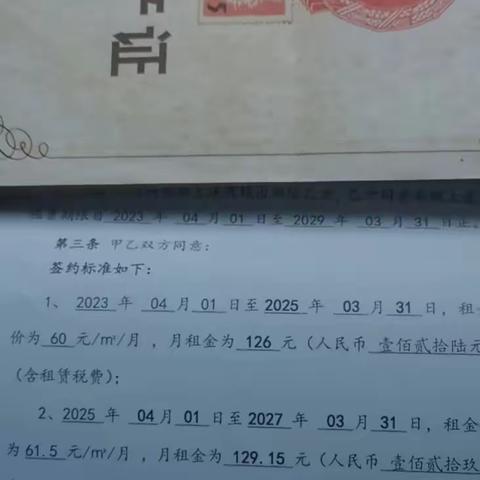 证
5
租赁期限自 2023 年 04 月 01 日至 2029 年 03 月 31 日止。
第三条 甲乙双方同意：
签约标准如下：
1、 2023 年 04 月 01 日至 2025 年 03 月 31 日，租
价为 60 元/㎡/月 ，月租金为 126 元（人民币 壹佰贰拾陆元
（含租赁税费）；
2、2025 年 04 月 01 日至 2027 年 03 月 31 日，租金
为 61.5 元/㎡/月 ，月租金为 129.15 元（人民币 壹佰贰拾玖